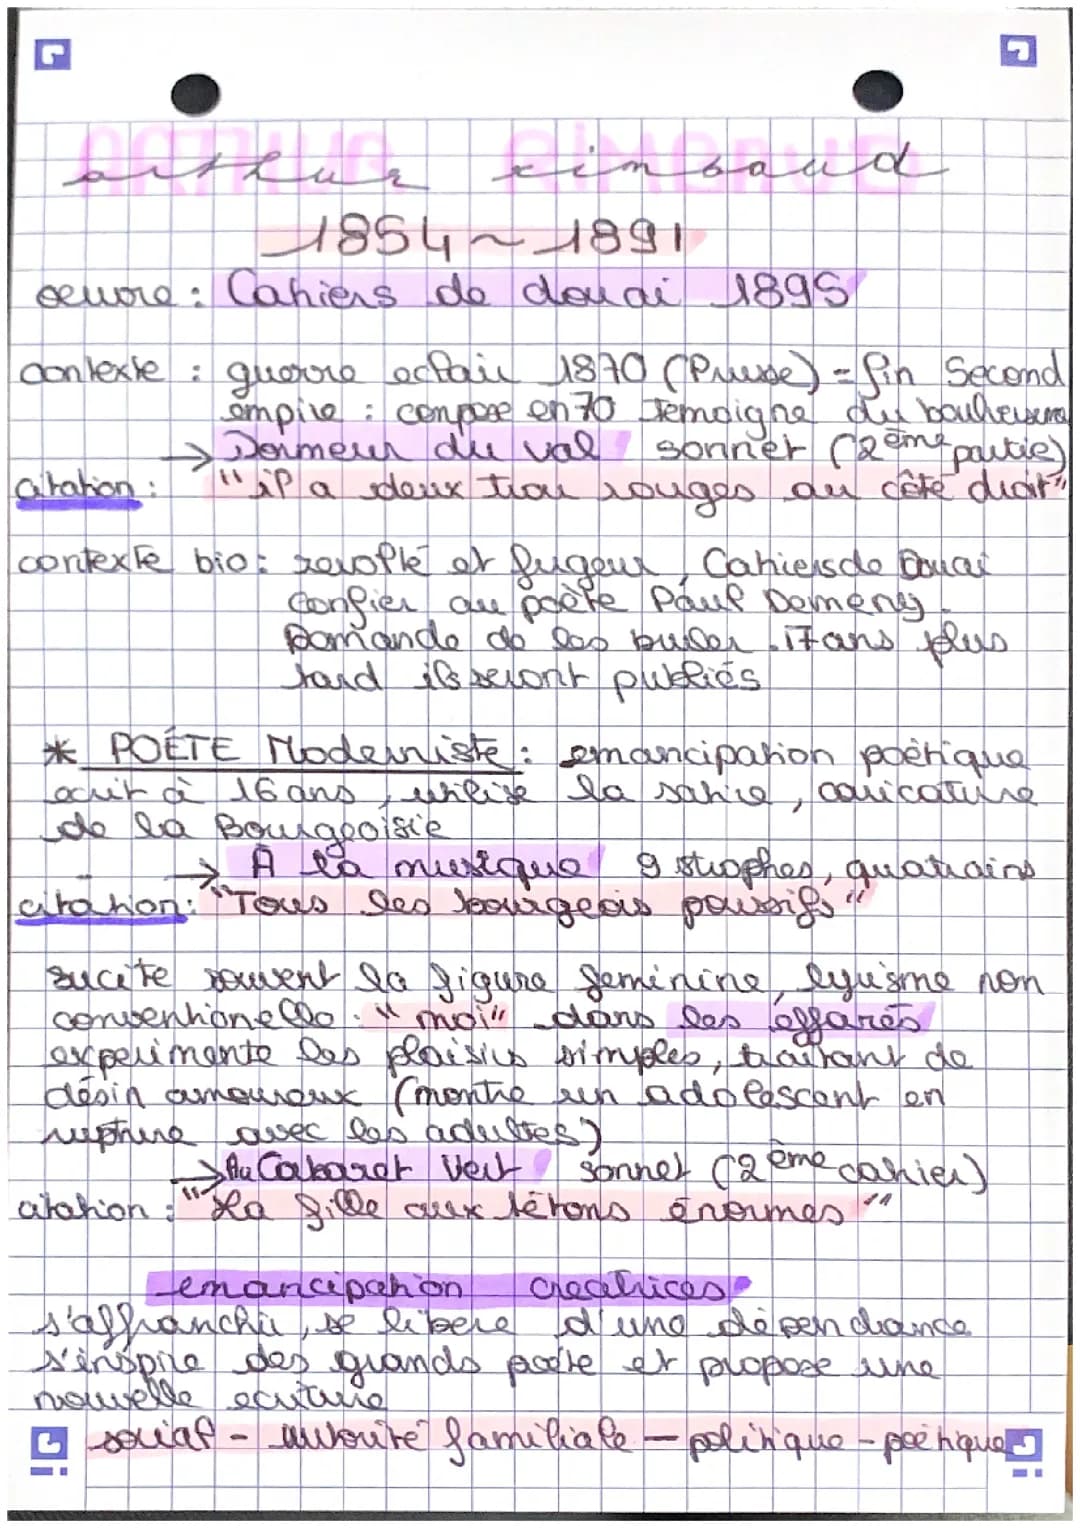 ARTHUR RIMBAUD
arthur rimbaud
1854 ~ 1891
oeuvre : Cahiers de douai 1895
contexte : guerre eclair 1870 (Prusse) = fin Second
empire : compose en 70 Temoigne du
→ Dormeur du val sonnet (2ème partie)
citation : "il a deux trou rouges au côté droit"
contexte bio : revolté et fugeur, Cahiers de Douai
confier au poète Paul Demeny.
Demande de les buler. 17 ans plus
tard ils seront publiés
* POÉTE Moderniste : emancipation poètique
ecrit à 16 ans, utilise la satire, caricature
de la Bourgeoisie
→ À la musique 9 strophes, quatrains
citation : "Tous les bourgeois poussifs"
sucite souvent la figure feminine, lyrisme non
conventionelle. "moi" dans les éffarés
experimente les plaisirs simples, traitant de
désir amoureux (montre un adolescent en
rupture avec les adultes)
→ Au Cabaret Vert sonnet (2ème cahier)
citation : "La fille aux tétons énormes"
emancipation creatrices
s'affranchir, se libere d'une dépendance
s'inspire des grands poète et propose une
nouvelle ecriture
social - autorité familiale - politique - poétique